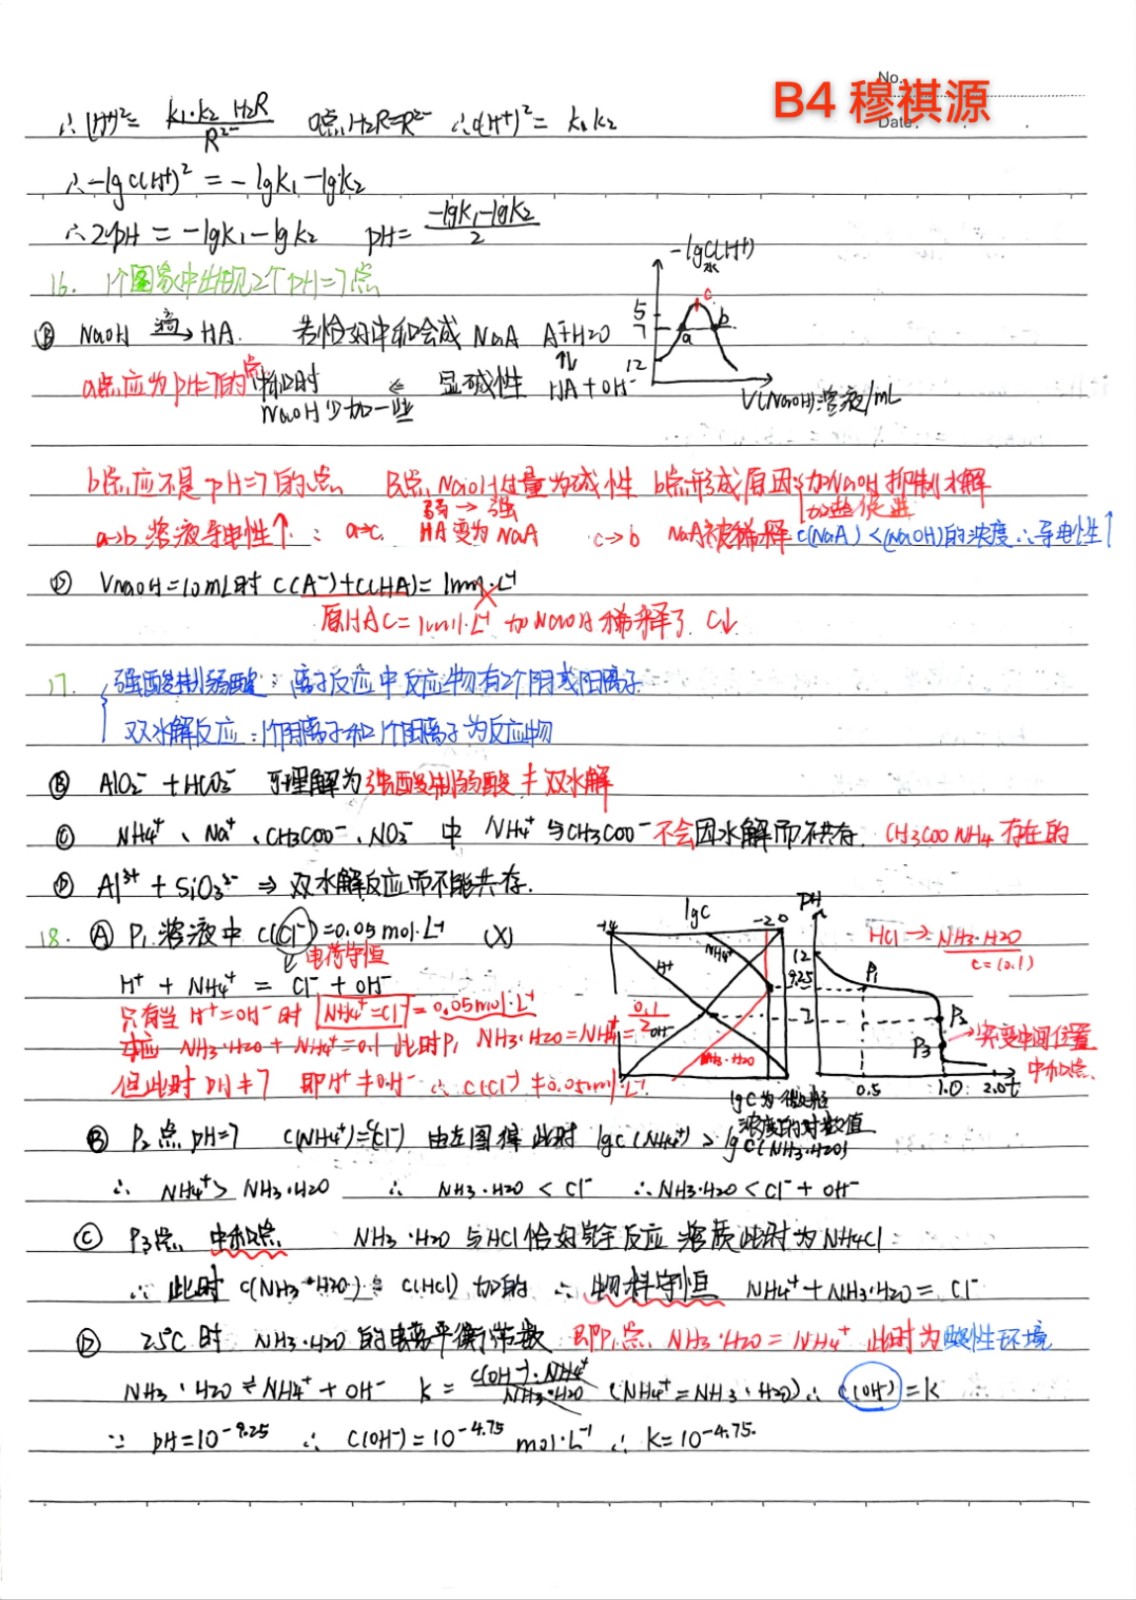 No.
B4 穆祺源
Date
∴ (H⁺)²= K₁·K₂ H₂R / R²⁻ a点,H₂R=R²⁻ ∴c(H⁺)²= K₁K₂
∴-lgc(H⁺)² = -lgK₁-lgK₂
∴2pH = -lgK₁-lgK₂ pH= -lgK₁-lgK₂ / 2
16. 1个图象中出现2个pH=7点
-lgc(H⁺)水
5
7
12
a
b
c
V(NaOH)溶液/mL
Ⓑ NaOH 滴→ HA. 若恰好中和会成 NaA A⁻+H₂O
⇅
a点应为pH=7的点 中和时 ⇐ 显碱性 HA+OH⁻
NaOH少加一些
b点应不是pH=7的点 B点NaOH过量为碱性 b点形成原因:加NaOH抑制水解
弱→强
a→b 溶液导电性↑ ∵ a→c. HA变为NaA c→b NaA被稀释 c(NaA)<(NaOH)的浓度∴导电性↑
Ⓓ VNaOH=10mL时 C(A⁻)+C(HA)=1mol·L⁻¹
原HAC=1mol·L⁻¹ 加NaOH稀释了 C↓
17. 强酸制弱酸: 离子反应中反应物有2个阴或阳离子
双水解反应:1个阴离子和1个阳离子为反应物
Ⓑ AlO₂⁻+HCO₃⁻ 可理解为强酸制弱酸≠双水解
Ⓒ NH₄⁺、Na⁺、CH₃COO⁻、NO₃⁻ 中 NH₄⁺与CH₃COO⁻不会因水解而不共存. CH₃COONH₄存在的
Ⓓ Al³⁺+SiO₃²⁻ ⇒ 双水解反应而不能共存.
18. Ⓐ P₁溶液中 c(Cl⁻)=0.05mol·L⁻¹ (X)
电荷守恒
H⁺ + NH₄⁺ = Cl⁻ + OH⁻
只有当 H⁺=OH⁻时 NH₄⁺=Cl⁻=0.05mol·L⁻¹ 0.1/2
NH₃·H₂O+NH₄⁺=0.1 此时P₁ NH₃·H₂O=NH₄⁺=
但此时pH≠7 即H⁺≠OH⁻ ∴c(Cl⁻)≠0.05mol·L⁻¹
lgC
-14
-2
0
NH₄⁺
H⁺
OH⁻
NH₃·H₂O
lgC为微粒
浓度的对数值
pH
12
9.25
7
P₁
P₂
P₃
0.5
1.0
2.0 t
HCl→NH₃·H₂O
c=(0.1)
突变中间位置
中和点
Ⓑ P₂点pH=7 C(NH₄⁺)=c(Cl⁻) 由左图得 此时 lgc(NH₄⁺)>lgc(NH₃·H₂O)
∴ NH₄⁺>NH₃·H₂O ∴ NH₃·H₂O<Cl⁻ ∴NH₃·H₂O<Cl⁻+OH⁻
Ⓒ P₃点 中和点 NH₃·H₂O与HCl恰好完全反应 溶质此时为NH₄Cl
∴此时 c(NH₃·H₂O)=c(HCl)加的 ∴物料守恒 NH₄⁺+NH₃·H₂O=Cl⁻
Ⓓ 25℃时 NH₃·H₂O的电离平衡常数 即P₁点 NH₃·H₂O=NH₄⁺ 此时为酸性环境
NH₃·H₂O⇌NH₄⁺+OH⁻ K= c(OH⁻)·NH₄⁺ / NH₃·H₂O (NH₄⁺=NH₃·H₂O)∴ c(OH⁻)=K
∵ pH=10⁻⁹·²⁵ ∴ C(OH⁻)=10⁻⁴·⁷⁵ mol·L⁻¹ ∴ K=10⁻⁴·⁷⁵.